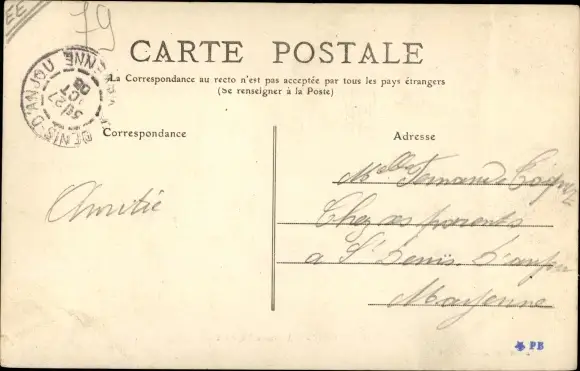 EE
79
CARTE POSTALE
La Correspondance au recto n'est pas acceptée par tous les pays étrangers
(Se renseigner à la Poste)
DENIS-D'ANJOU
27
OCT
08
Correspondance
Adresse
Amitié
Melle Fernande
Chez ses parents
a St Denis D'anjou
Mayenne
PB